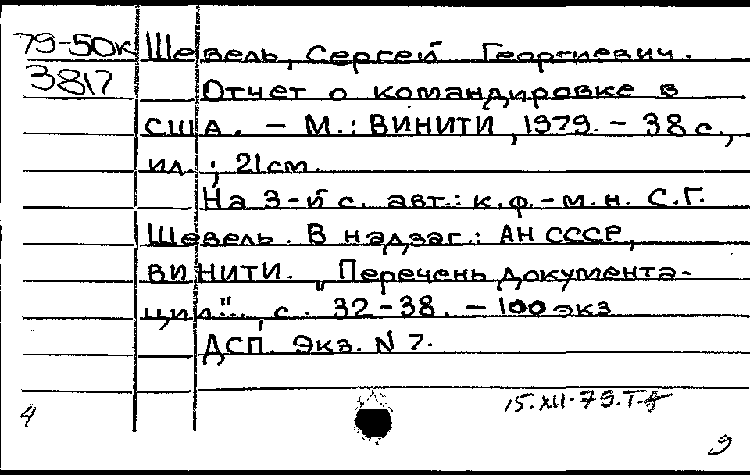 79-50к Шевель, Сергей Георгиевич.
3817 Отчет о командировке в
США. - М.: ВИНИТИ, 1979. - 38 с.,
ил.; 21 см.
На 3-й с. авт.: к.ф.-м.н. С.Г.
Шевель. В надзаг.: АН СССР,
ВИНИТИ. "Перечень документа-
ции", с. 32-38. - 100 экз
ДСП. Экз. N 7.
15.XII.79.
4
9